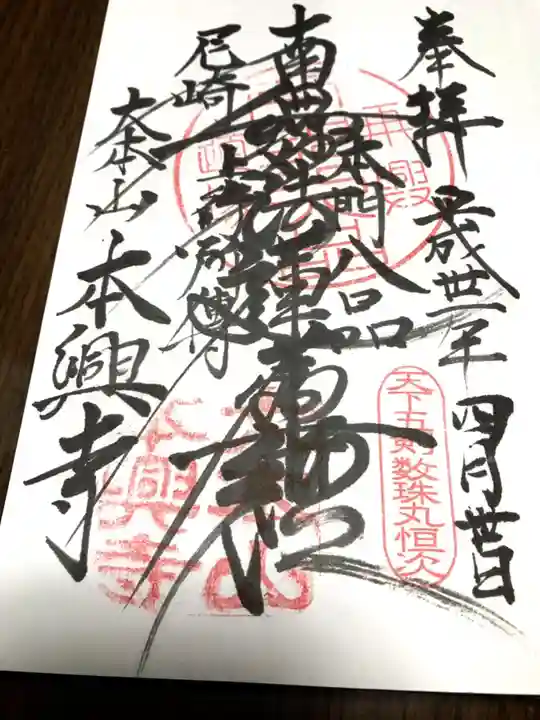 奉拝
平成卅一年四月卅日
本門八品
南無妙法蓮華経
上行所傳
尼崎
大本山本興寺
天下五剣数珠丸恒次
本興寺